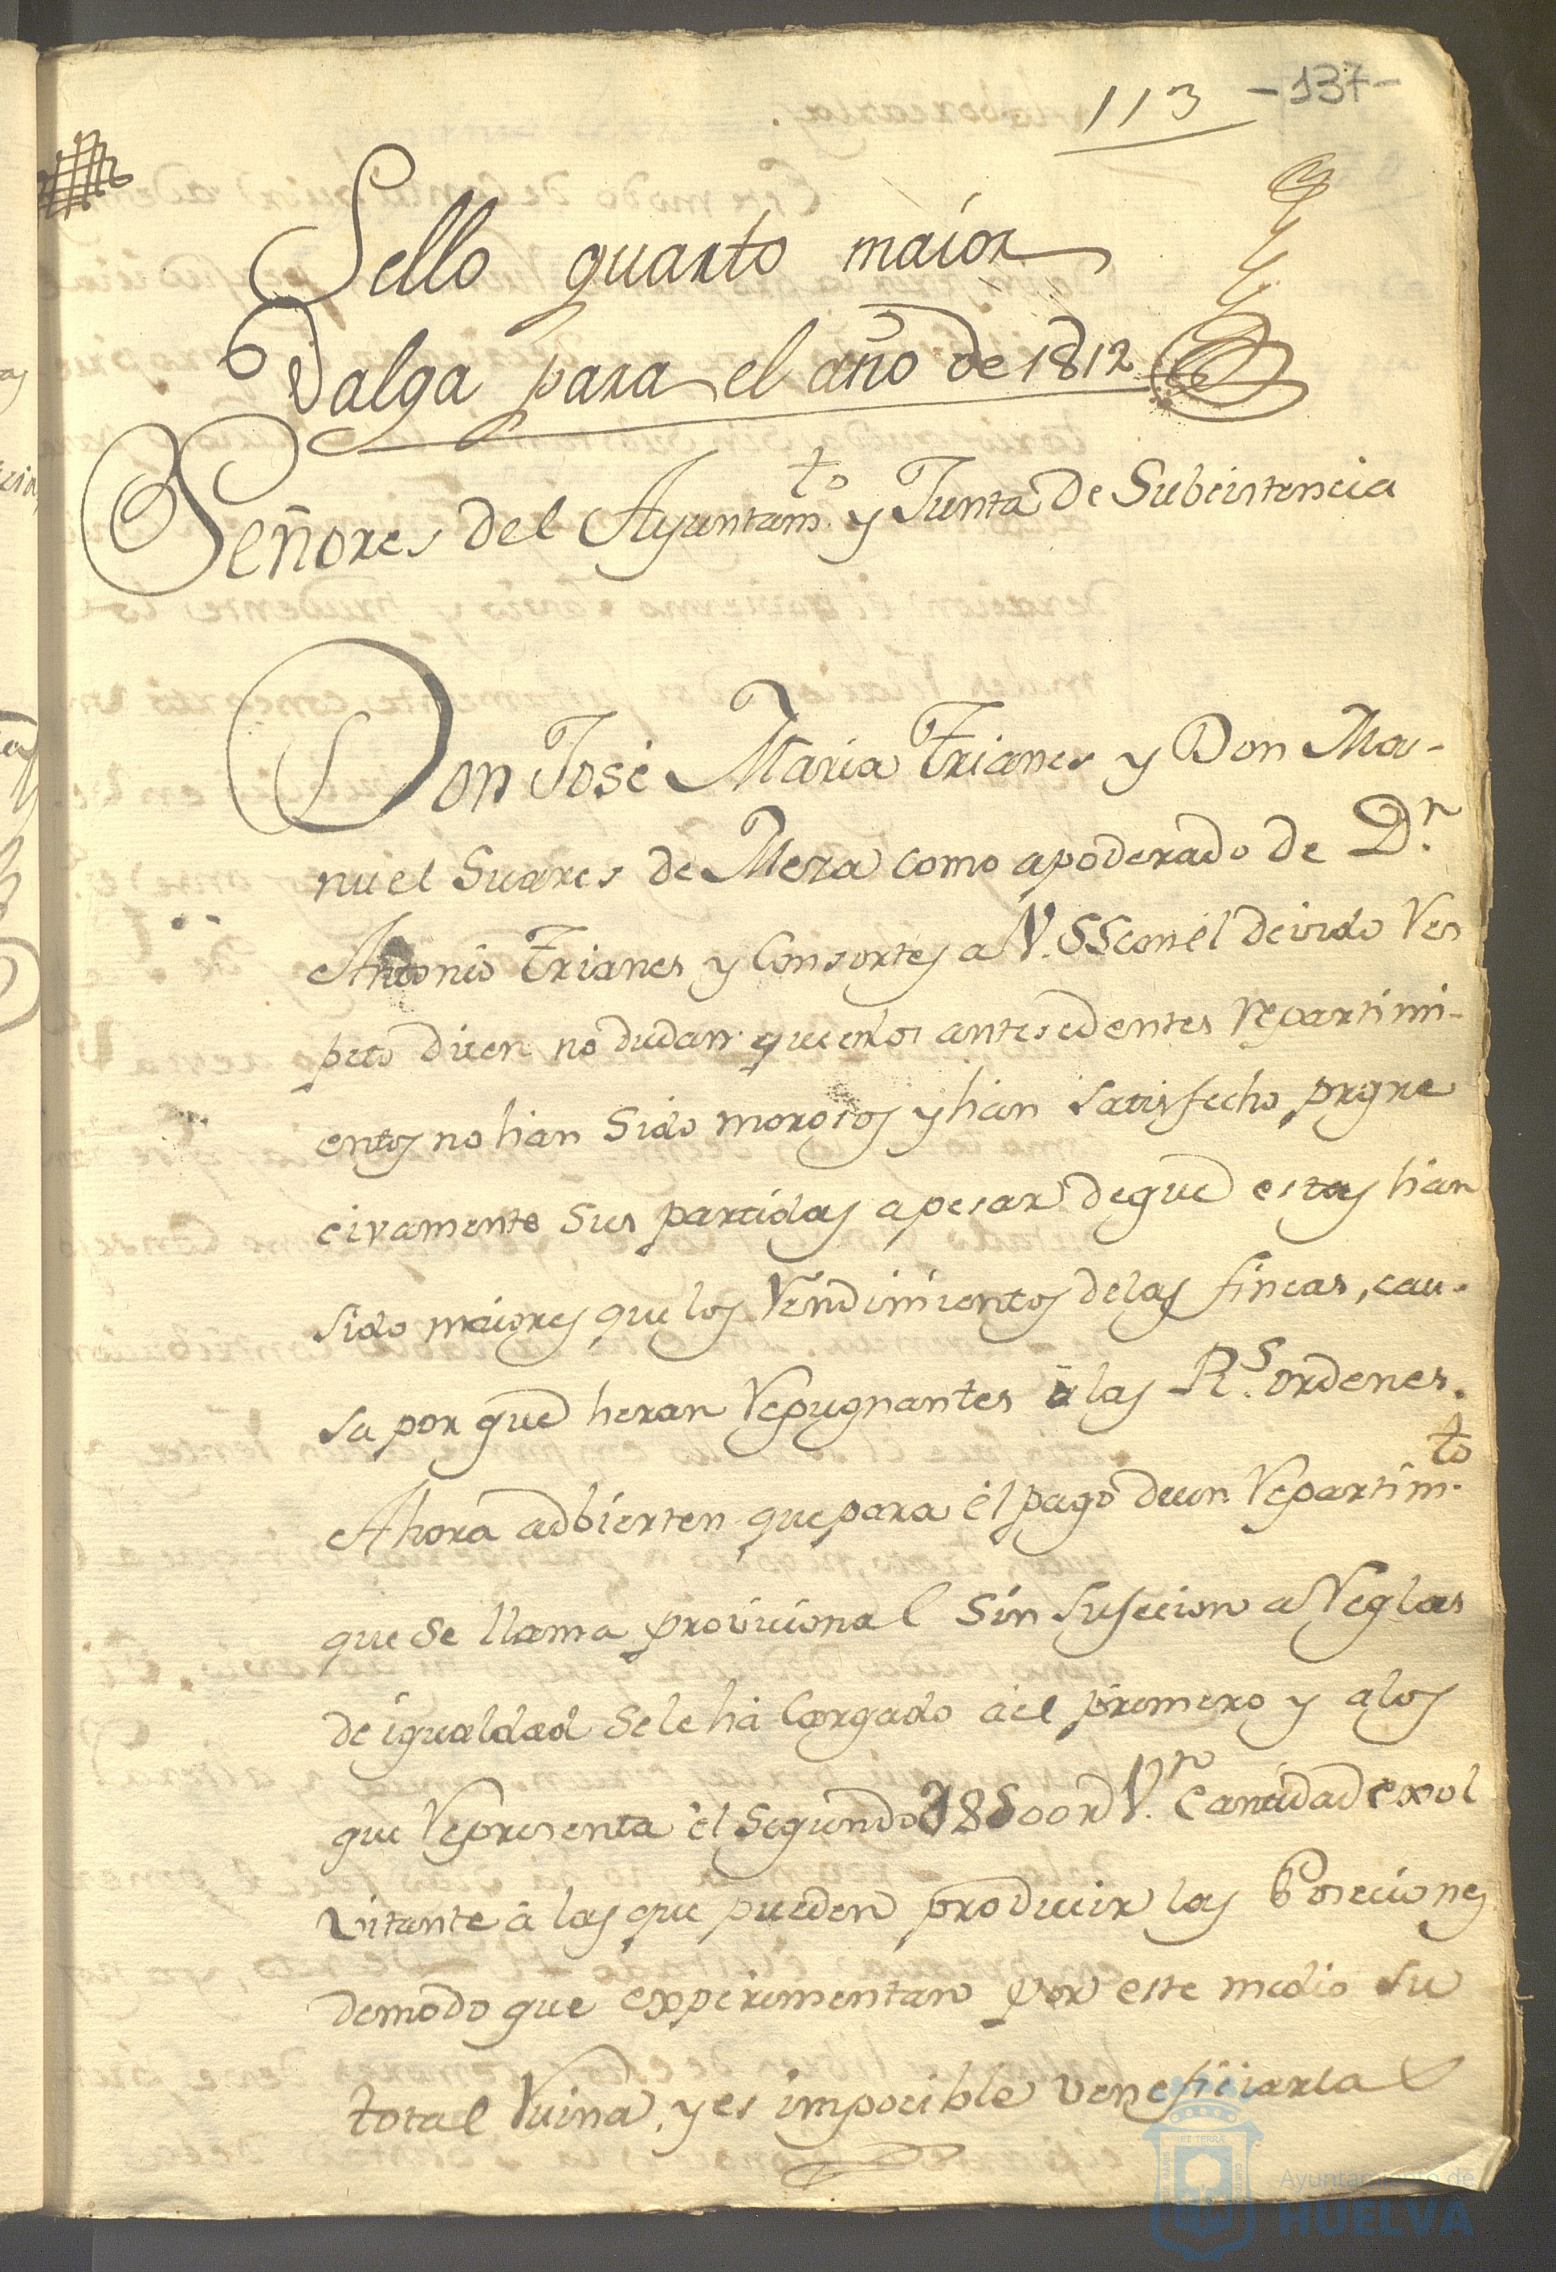 113 -137-
Sello quarto maior
Valga para el año de 1812
Señores del Ayuntamto. y Junta de Subcistencia
Don José Maria Trianes y Don Ma-
nuel Suares de Mesa como apoderado de Dn.
Antonio Trianes y Consortes a V. SS con el devido Res
peto dicen no dudan que en los antesedentes repartimi-
entos no han sido morosos y han satisfecho prgre
civamente sus partidas apesar de que estas han
sido maiores que los rendimientos de las fincas, cau-
sa por que heran repugnantes á las Rs. ordenes.
Ahora adbierten que para el pago de un repartimto.
que se llama provicional sin sujecion a reglas
de igualdad se le há cargado á el primero y a los
que representa el segundo 38500 rs Vn. cantidad exol
vitante á las que pueden producir las Poseciones
de modo que experimentan por este medio su
total ruina, y es impocible veneficiarla
ET TERRÆ
Ayuntamiento de
HUELVA